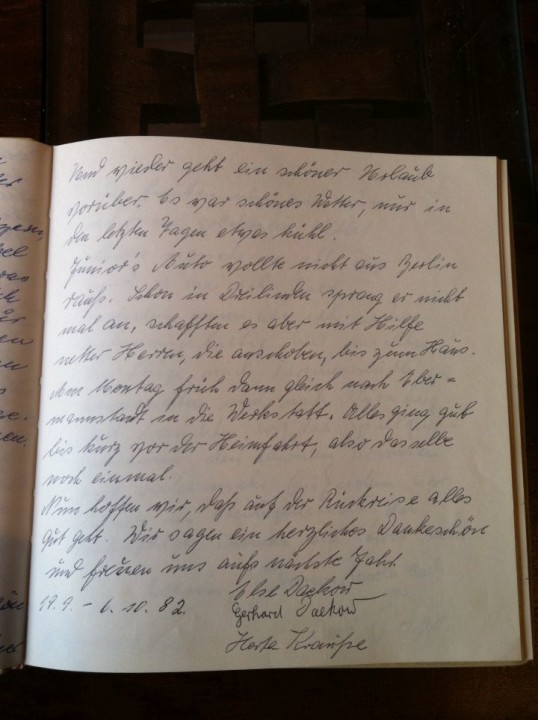 Und wieder geht ein schöner Urlaub
vorüber. Es war schönes Wetter, nur in
den letzten Tagen etwas kühl.
Junior's Auto wollte nicht aus Berlin
raus. Schon in Dreilinden sprang er nicht
mal an, schafften es aber mit Hilfe
netter Herren, die anschoben, bis zum Haus.
Am Montag früh dann gleich nach Eber=
mannstadt in die Werkstatt. Alles ging gut
bis kurz vor der Heimfahrt, also dasselbe
noch einmal.
Nun hoffen wir, daß auf der Rückreise alles
gut geht. Wir sagen ein herzliches Dankeschön
und freuen uns aufs nächste Jahr.
Else Daekow
19.9. – 6.10.82. Gerhard Daekow
Herta Krause